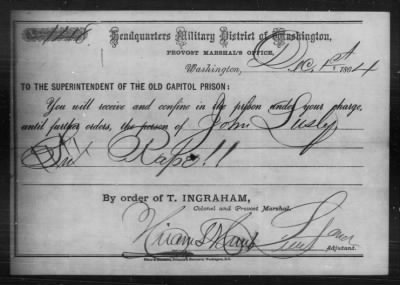 1118
Headquarters Military District of Washington,
PROVOST MARSHAL'S OFFICE,
Washington, Dec. 1st 1864
TO THE SUPERINTENDENT OF THE OLD CAPITOL PRISON:
You will receive and confine in the prison under your charge,
until further orders, the person of John
Rape!!
By order of T. INGRAHAM,
Colonel and Provost Marshal.
Hiram
Adjutant.